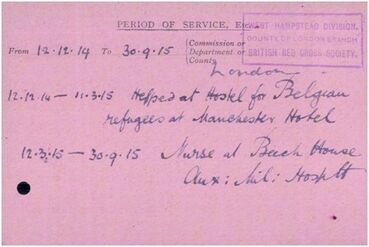 PERIOD OF SERVICE,
WEST HAMPSTEAD DIVISION,
COUNTY OF LONDON BRANCH
BRITISH RED CROSS SOCIETY.
From 12.12.14 To 30.9.15
Commission or
Department or
County
London
12.12.14 — 11.3.15 Helped at Hostel for Belgian
refugees at Manchester Hotel
12.3.15 — 30.9.15 Nurse at Beech House
Aux: Mil: Hosptl